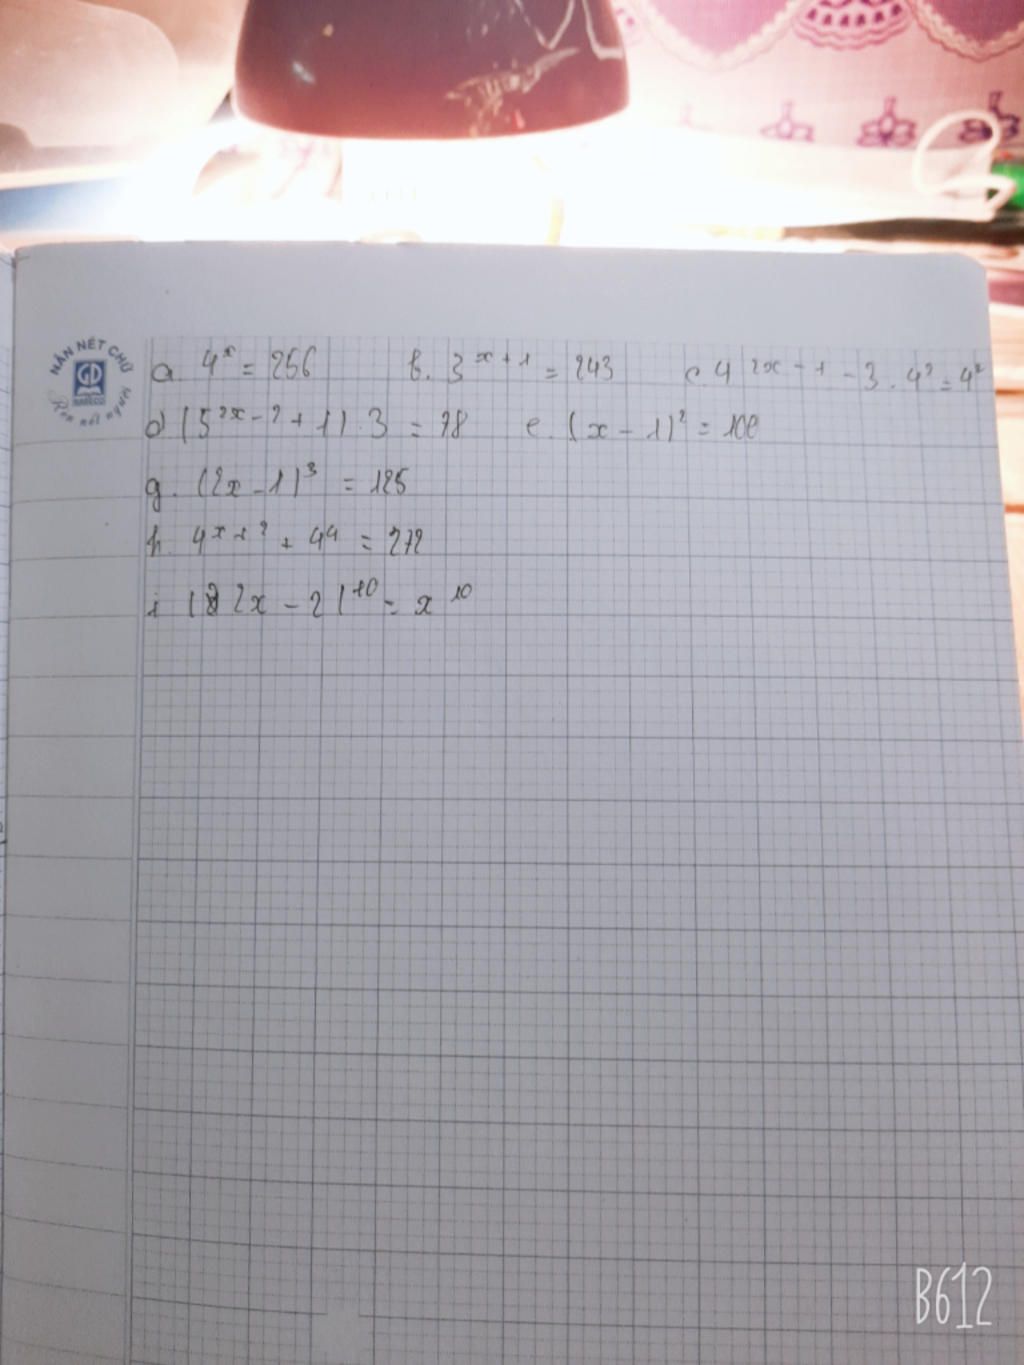 NẮN NÉT CHỮ
GD
Rèn nết người
a. 4^x = 256 b. 3^{x+1} = 243 c. 4^{2x-1} - 3 . 4^2 = 4^2
d) (5^{2x-2} + 1) . 3 = 78 e. (x - 1)^2 = 100
g. (2x - 1)^3 = 125
h. 4^{x+2} + 4^4 = 272
i (2x - 2)^{10} = x^{10}
B612